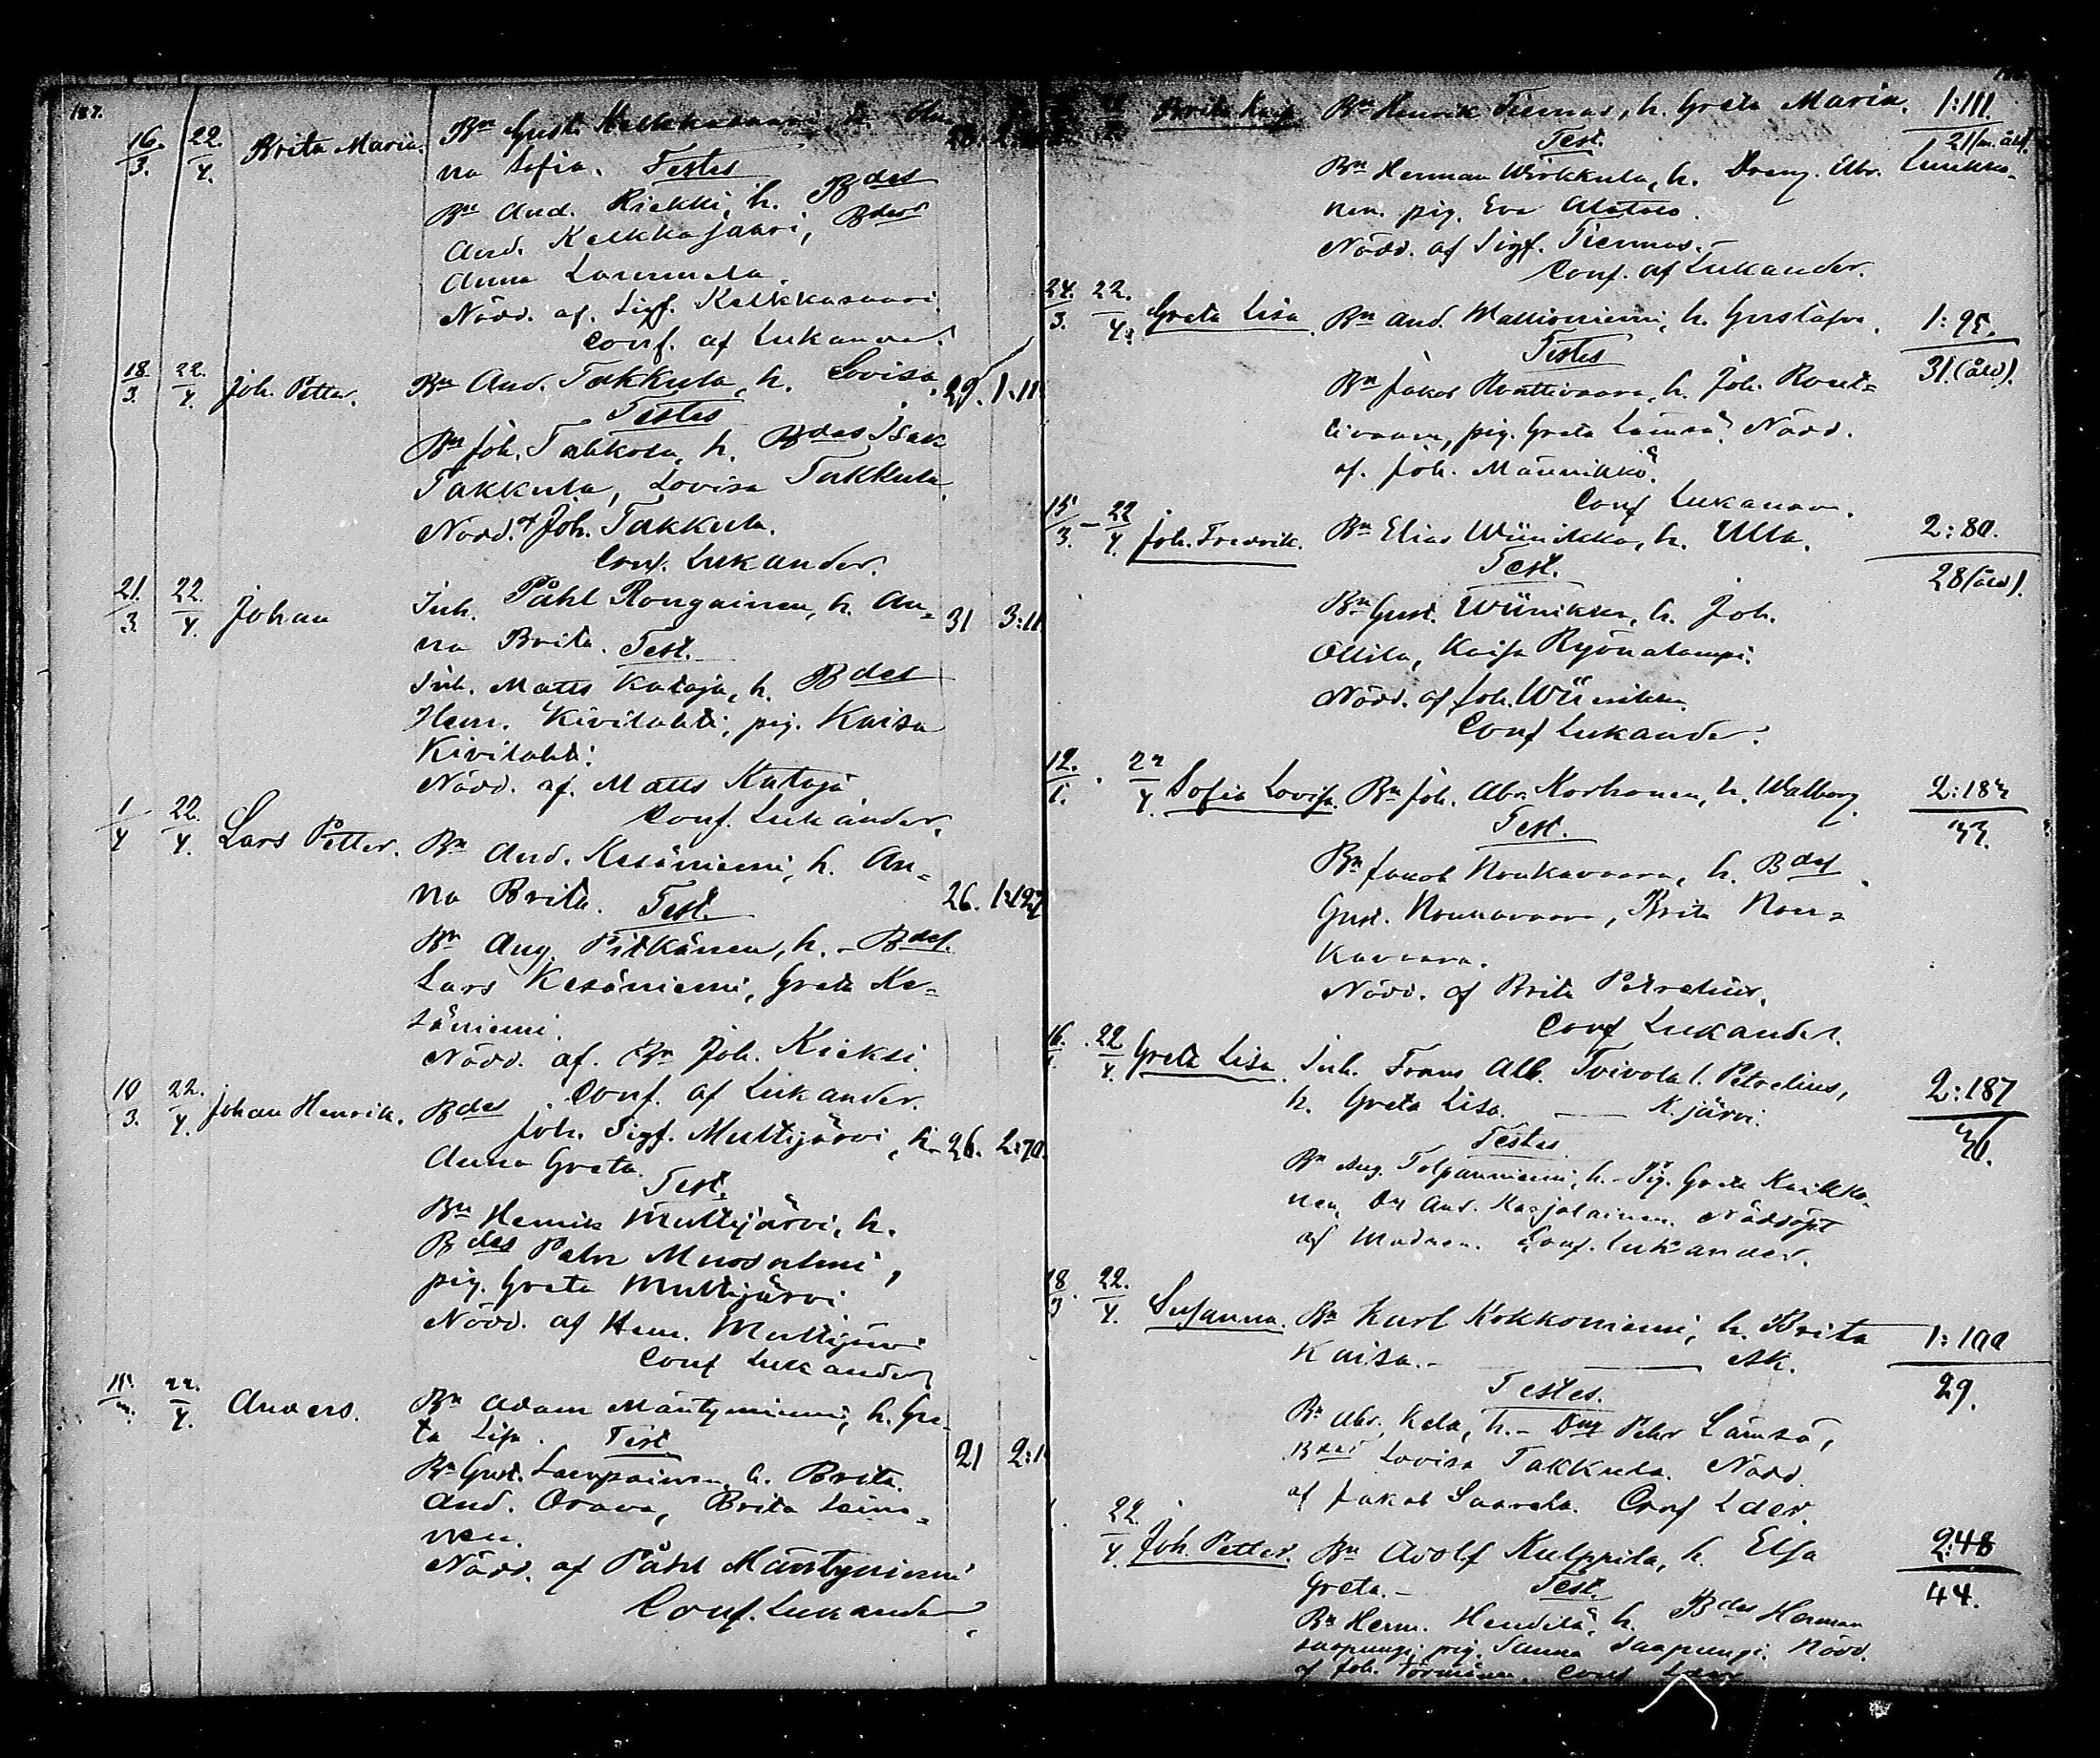 187.
16. 22. Brita Maria. Bn Gust. Kelkkasaari, h. An
3. 4. na Sofia. Testes
Bn And. Riekki, h. Bdes
And. Kelkkajaari, Bdes
Anna Lammela.
Nödd. af. Sigf. Kelkkasaari
Conf. af Lukander.
18 22. Joh. Petter. Bn And. Takkula, h. Lovisa. 29. 1:11
3. 4. Testes
Bn Joh. Tahkola, h. Bdes Isak
Takkula, Lovisa Takkula.
Nödd. af Joh. Takkula.
Conf. Lukander.
21. 22. Johan Inh. Påhl Rongainen, h. An= 31 3:11
3. 4. na Brita. Test.
Inh. Matts Kataja, h. Bdes
Henr. Kivilahti, pig. Kaisa
Kivilahti.
Nödd. af. Matts Kataja
Conf. Lukander.
1 22. Lars Petter. Bn And. Kesäniemi, h. An=
4 4. na Brita. Test. 26.
Bn Aug. Pitkänen, h. - Bdes.
Lars Kesäniemi, Greta Ke=
säniemi.
Nödd. af. Bn Joh. Kieksi.
Conf. af Lukander.
10 22. Johan Henrik. Bdes Joh. Sigf. Multijärvi, h. 26. 2:70.
3. 4. Anna Greta.
Test.
Bn Henrik Multijärvi, h.
Bdes Pehr Mursalmi,
pig. Greta Multijärvi
Nödd. af Henr. Multijärvi
Conf Lukander
22. Anders. Bn Adam Mäntyniemi, h. Gre=
4. ta Lisa. Test 21 2:1
Bn Gust. Lampainen, h. Brita.
And. Orava, Brita Leino=
nen.
Nödd. af Påhl Mäntyniemi
Conf. Lukander
Brita Kaisa Bn Henrik Tiermas, h. Greta Maria. 1:111.
Test. 21
Bn Herman Wirkkula, h. Dreng. Abr. Luukko=
nen. pig. Eva Alatalo.
Nödd. af Sigf. Tiermas. -
Conf. af Lukander.
24. 22. Greta Lisa Bn And. Wallioniemi, h. Gustafva. 1:95.
3. 4. Testes 31. (åld).
Bn Jakob Routtivaara, h. Joh. Rout=
tivaara, pig. Greta Lämsä. Nödd.
af. Joh. Männikkö.
Conf Lukander.
15 - 22 Joh. Fredrik. Bn Elias Wiinikka, h. Ulla. 2:80.
3. 4. Test. 28 (åld).
Bn Gust. Wiinikka, h. Joh.
Ollila, Kaisa Ryönalampi.
Nödd. af Joh. Wiinikka
Conf Lukander.
12. 22 Sofia Lovisa. Bn Joh. Abr. Korhonen, h. Walborg.
4. Test. 33.
Bn Jakob Noukavaara, h. Bdes
Gust. Noukavaara, Brita Nou=
kavaara.
Nödd. af Brita Petrelius.
Conf Lukander.
16. 22 Greta Lisa. Inh. Frans Alb. Toivola l. Petrelius, 2:187
4. h. Greta Lisa. — K. järvi. 36.
Testes
Bn Aug. Tolpanniemi, h. - Pig. Greta Kaikko=
nen, Dr And. Karjalainen. Nöddöpt
af Modren. Conf. Lukander.
18. 22. Susanna. Bn Karl Kokkoniemi, h. Brita 1:100
3 4. Kaisa. - — AK. 29.
Testes.
Bn Abr. Kela, h. - Dng Pehr Lämsä,
Bdes Lovisa Takkula. Nödd
af Jakob Saarela. Conf Lder.
22. Joh. Petter. Bn Adolf Kulppila, h. Elsa 2:48
4. Greta. - Test. 44.
Bn Herm. Hendilä, h. Bdes Herman
Saapungi, pig. Sanna Saapungi. Nödd.
af Joh. Törmänen. Conf